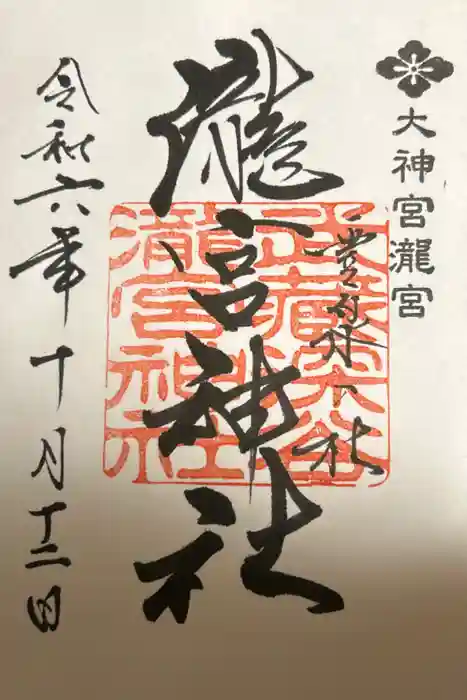 大神宮瀧宮
瀧宮神社
武蔵深谷
瀧宮神社
令和六年十月十二日